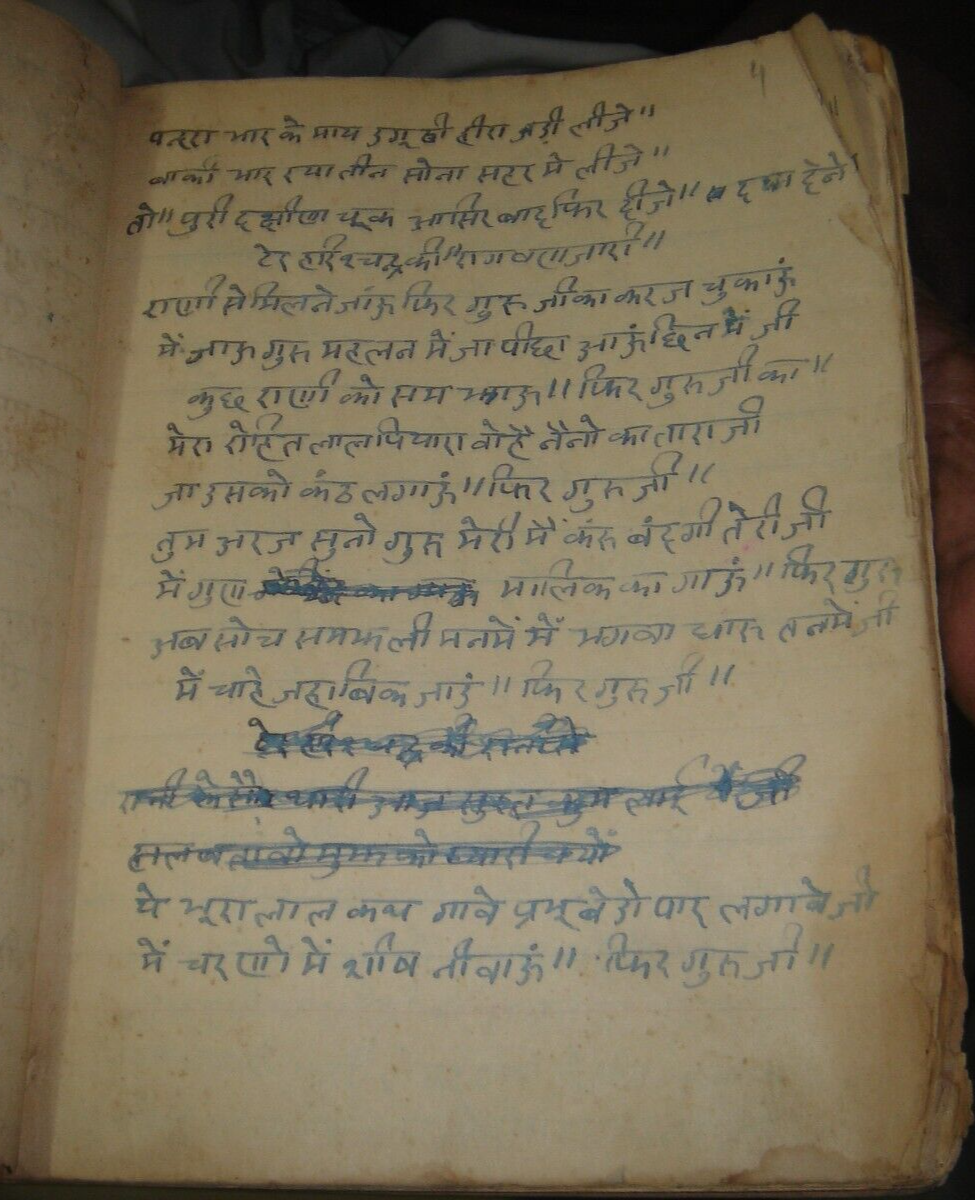 ५
पन्दरा भार के माय उगूठी हीरा जड़ी लीजे॥
बाकी भार रया तीन सोना सहर मे लीजे॥
तो॥ पुरी दक्षीणा चूक आसिरबाद फिर दीजे॥ दया देने॥
टेर हरिश्चन्द्र की॥ राग वणजारा॥
राणी से मिलने जांऊ फिर गुरु जी का करज चुकाऊं
में जाऊ गुरु महलन में जा पीछा आऊं छिन में जी
कुछ राणी को समझाऊ॥ फिर गुरु जी का॥
मेरा रोहित लाल पियारा वो है नैनो का तारा जी
जा उसको कंठ लगाऊं॥ फिर गुरु जी॥
तुम अरज सुनो गुरु मेरी मैं करु बंदगी तेरी जी
में गुण मालिक का गाऊं॥ फिर गुरु
अब सोच समझ ली मनमें में भगवा धारु तनमें जी
में चाहे जहा बिक जाउं॥ फिर गुरु जी॥
टेर हरिश्चन्द्र की
रानी
हाल बतावो मुझको प्यारी क्यों
ये भूरा लाल कथ गावे प्रभू बेडो पार लगावे जी
में चरणो में शीष नीवाऊं॥ फिर गुरु जी॥